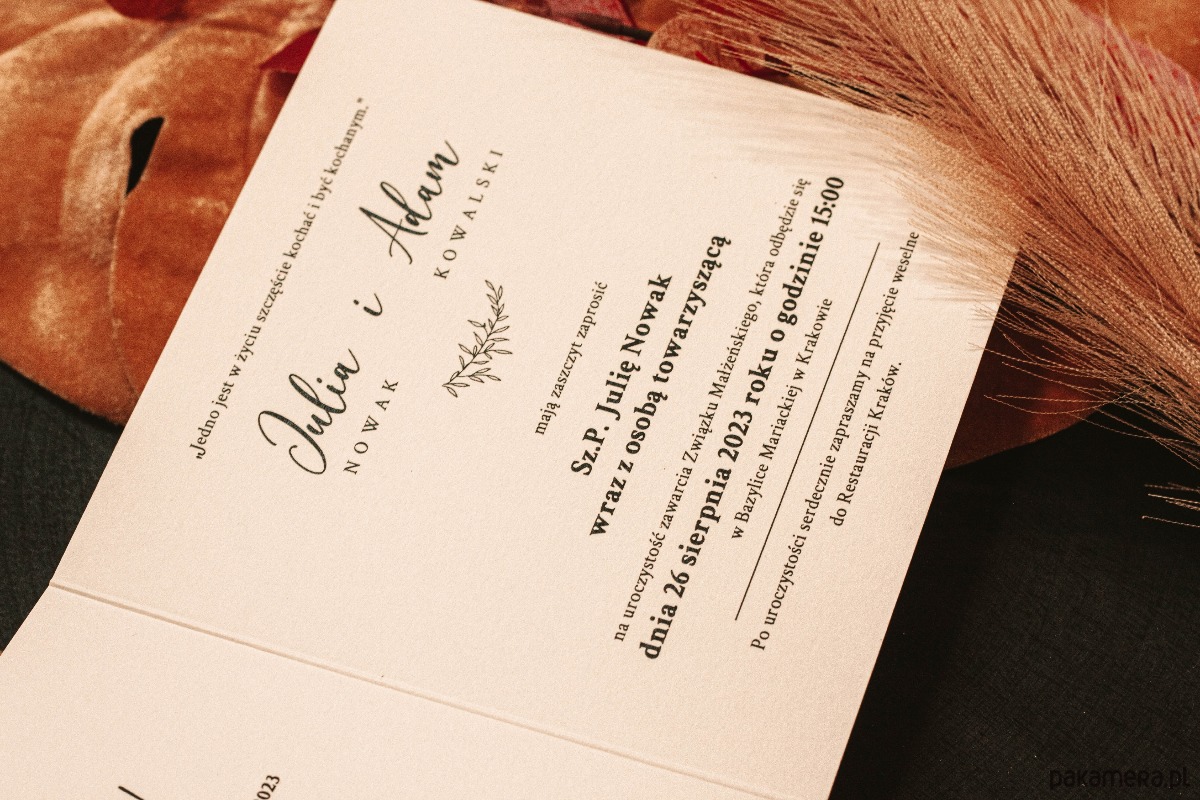 „Jedno jest w życiu szczęście kochać i być kochanym."
Julia i Adam
NOWAK KOWALSKI
mają zaszczyt zaprosić
Sz.P. Julię Nowak
wraz z osobą towarzyszącą
na uroczystość zawarcia Związku Małżeńskiego, która odbędzie się
dnia 26 sierpnia 2023 roku o godzinie 15:00
w Bazylice Mariackiej w Krakowie
Po uroczystości serdecznie zapraszamy na przyjęcie weselne
do Restauracji Kraków.
2023
pakamera.pl